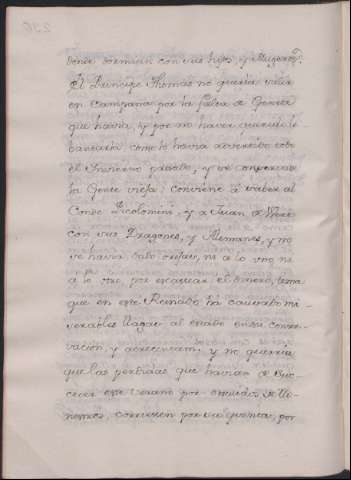 donde dormian con sus hijos, y Mugeres.
El Principe Thomas no queria salir
en Campaña por la falta de Gente
que havia, y por no haver querido le-
bantarla como lo havia advertido todo
el Invierno pasado, y se conservase
la Gente vieja: conviene a saver al
Conde Picolomini, y a Juan de Were
con sus Dragones, y Alemanes, y no
se havia dado oidos, ni a lo uno, ni
a lo otro, por escasear el dinero, tema
que en este Reinado ha causado mi-
serables llagas al estado en su conser-
vación, y acrecentam.to y no querria
que las pérdidas que havian de suc-
ceder este verano por descuidos de Mi-
nistros, corriesen por su quenta, por